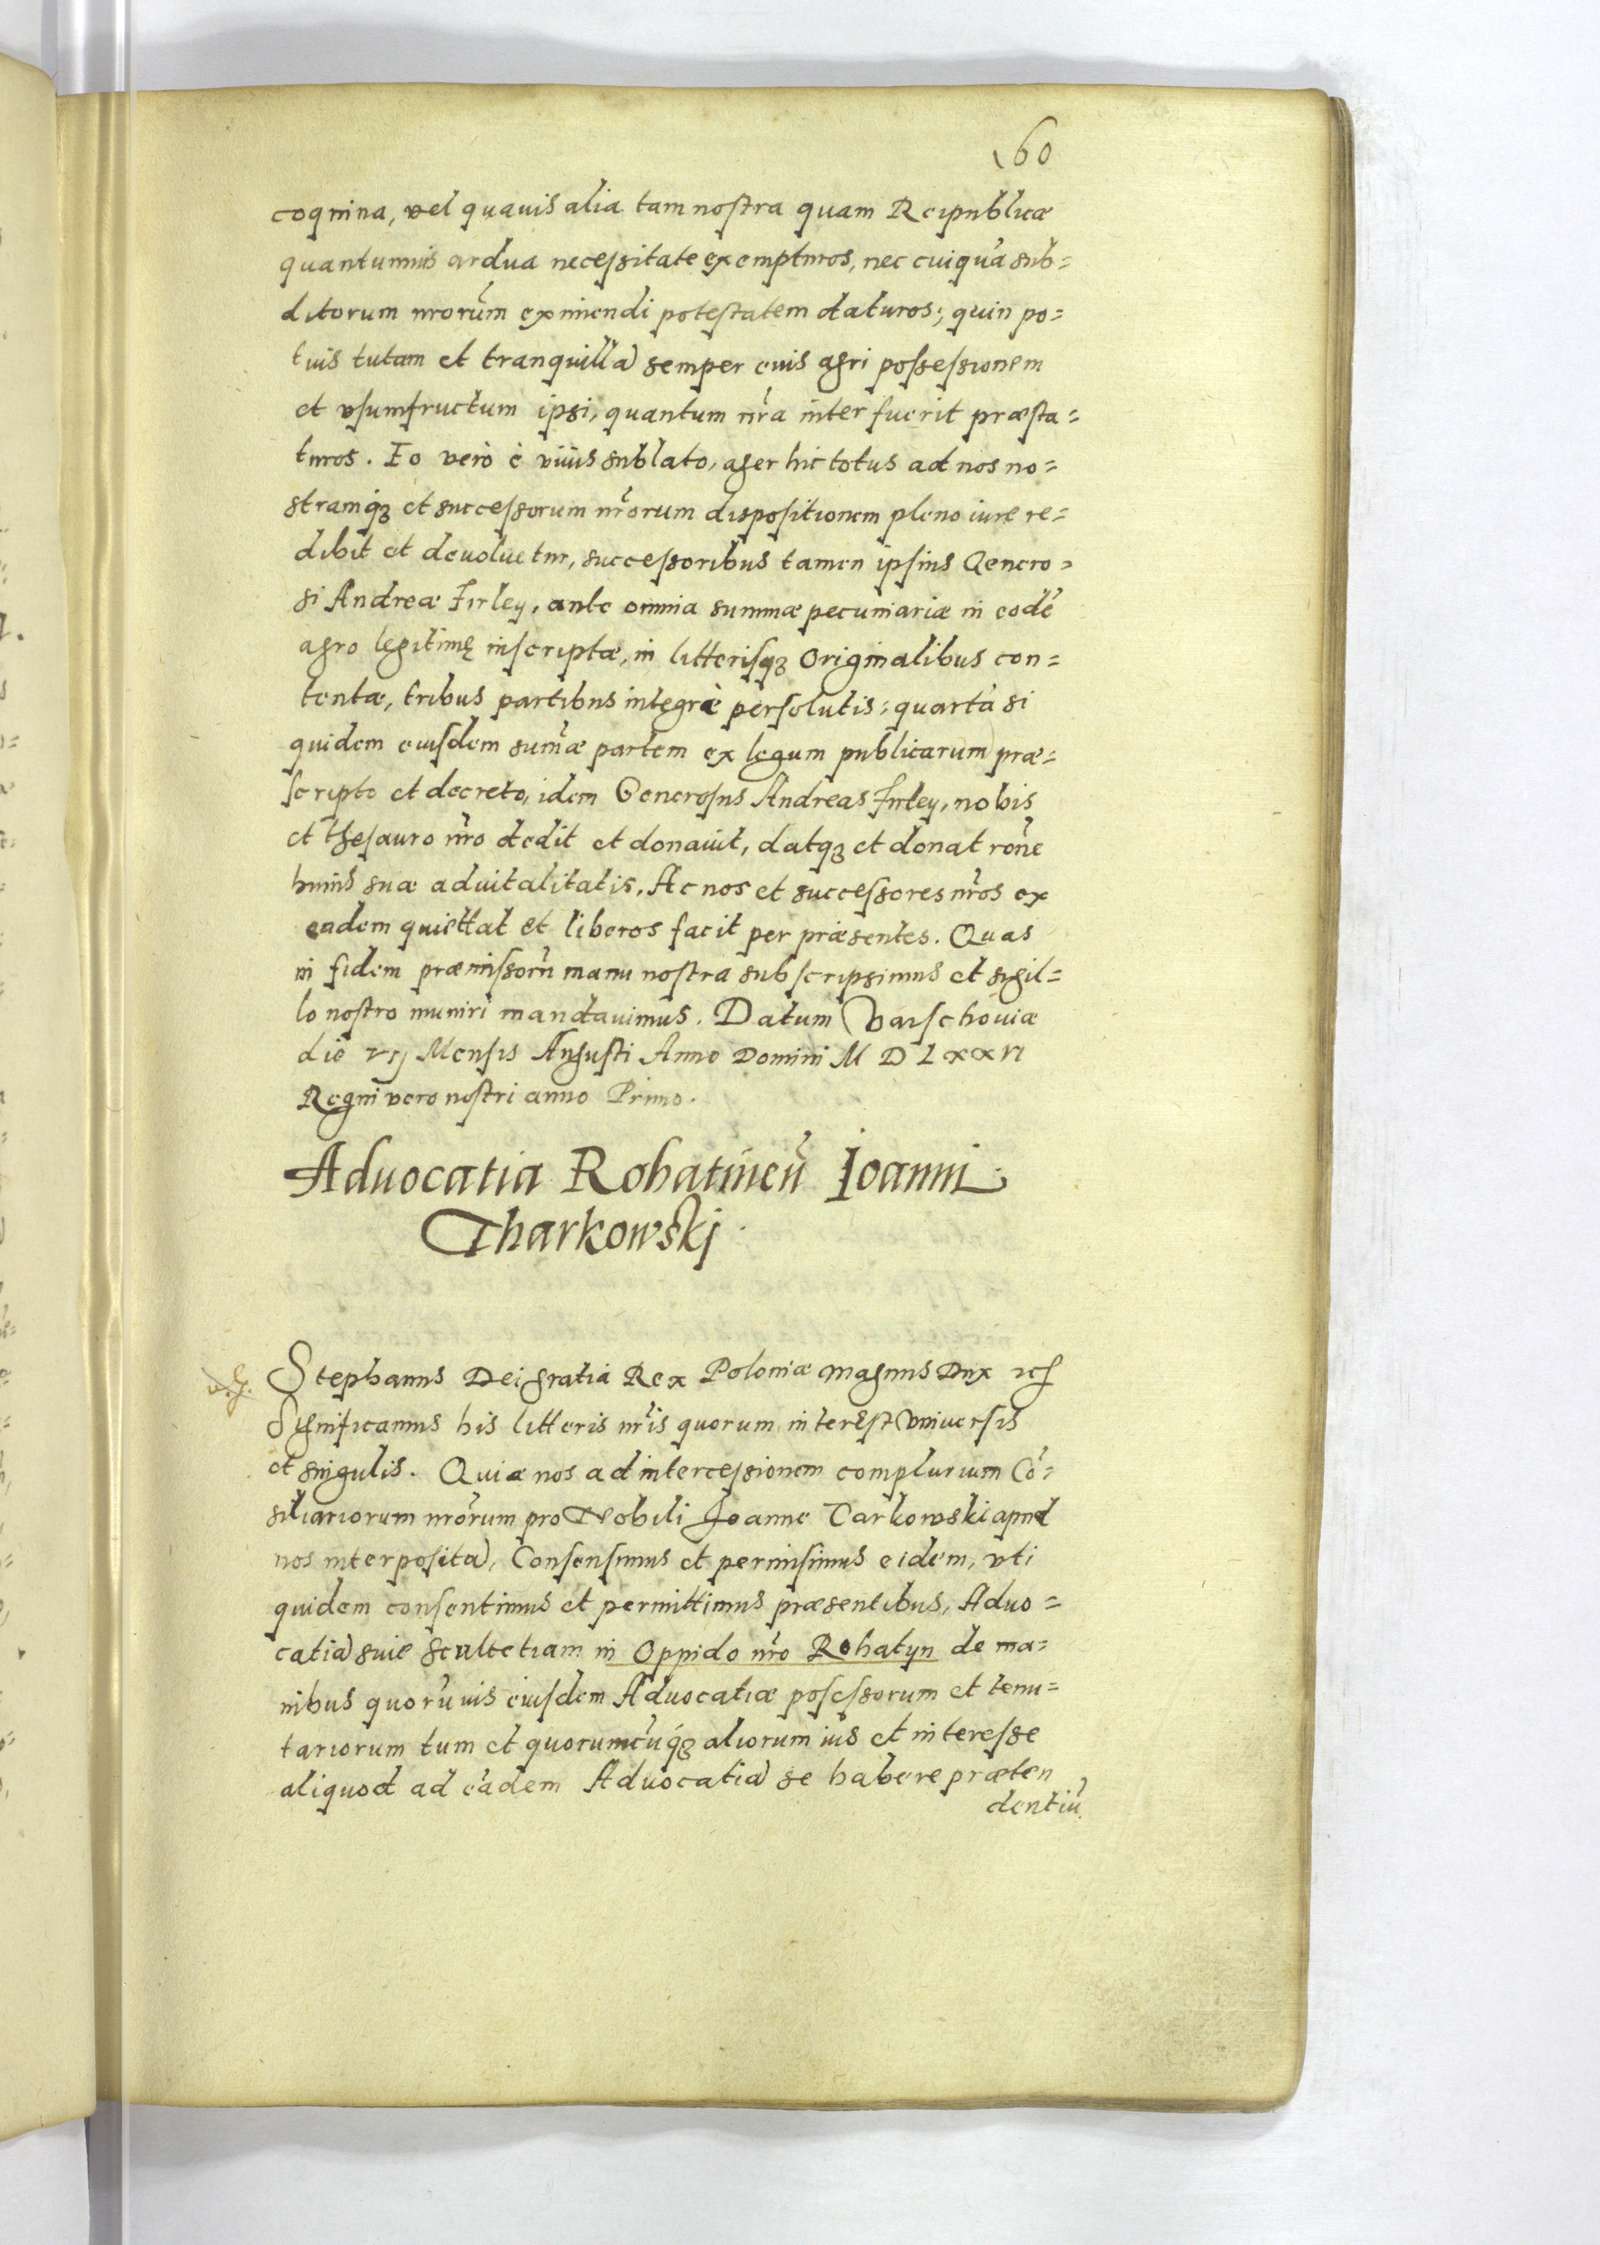 60
cognina, vel quavis alia tam nostra quam Reipublicæ
quantumvis ardua necessitate exempturos, nec cuiquā sub=
ditorum nrōrum eximendi potestatem daturos; quin po=
tius tutam et tranquillā semper euis agri possessionem
et vsumfructum ipsi, quantum nrā interfuerit præsta=
turos. Eo verò è viuis sublato, ager hic totus ad nos no=
stramq₃ et successorum nrōrum dispositionem pleno iure re=
dibit et devoluetur, successoribus tamen ipsius Genero=
si Andreæ Firley, ante omnia summæ pecuniariæ in eodē
agro legitimę inscriptæ, in litterisq₃ originalibus con=
tentæ, tribus partibus integrè persolutis: quartā si
quidem eiusdem sum̄æ partem ex legum publicarum præ=
scripto et decreto, idem Generosus Andreas Firley, nobis
et thesauro nrō dedit et donauit, datq₃ et donat rōne
huius suæ aduitalitatis, Ac nos et successores nrōs ex
eadem quiettat et liberos facit per præsentes. Quas
in fidem præmissorū manu nostra subscripsimus et sigil=
lo nostro muniri mandauimus. Datum Varschouiæ
die vij Mensis Augusti Anno Domini M D LXXVI
Regni vero nostri anno Primo.
Aduocatia Rohatineñ Ioanni
Tharkowskj.
Stephanus Dei gratia Rex Poloniæ Magnus Dux etc
Significamus his litteris nrīs quorum interest vniversis
et singulis. Quia nos ad intercessionem complurium Cō=
siliariorum nrōrum pro Nobili Joanne Tarkowski apud
nos interpositā, Consensimus et permisimus eidem, vti
quidem consentimus et permittimus præsentibus, Aduo=
catiā siue scultetiam in Oppido nrō Rohatyn de ma=
nibus quorūuis eiusdem Aduocatiæ possessorum et tenu=
tariorum tum et quorumcūq₃ aliorum ius et interesse
aliquod ad eādem Aduocatiā se habere præten
dentiū